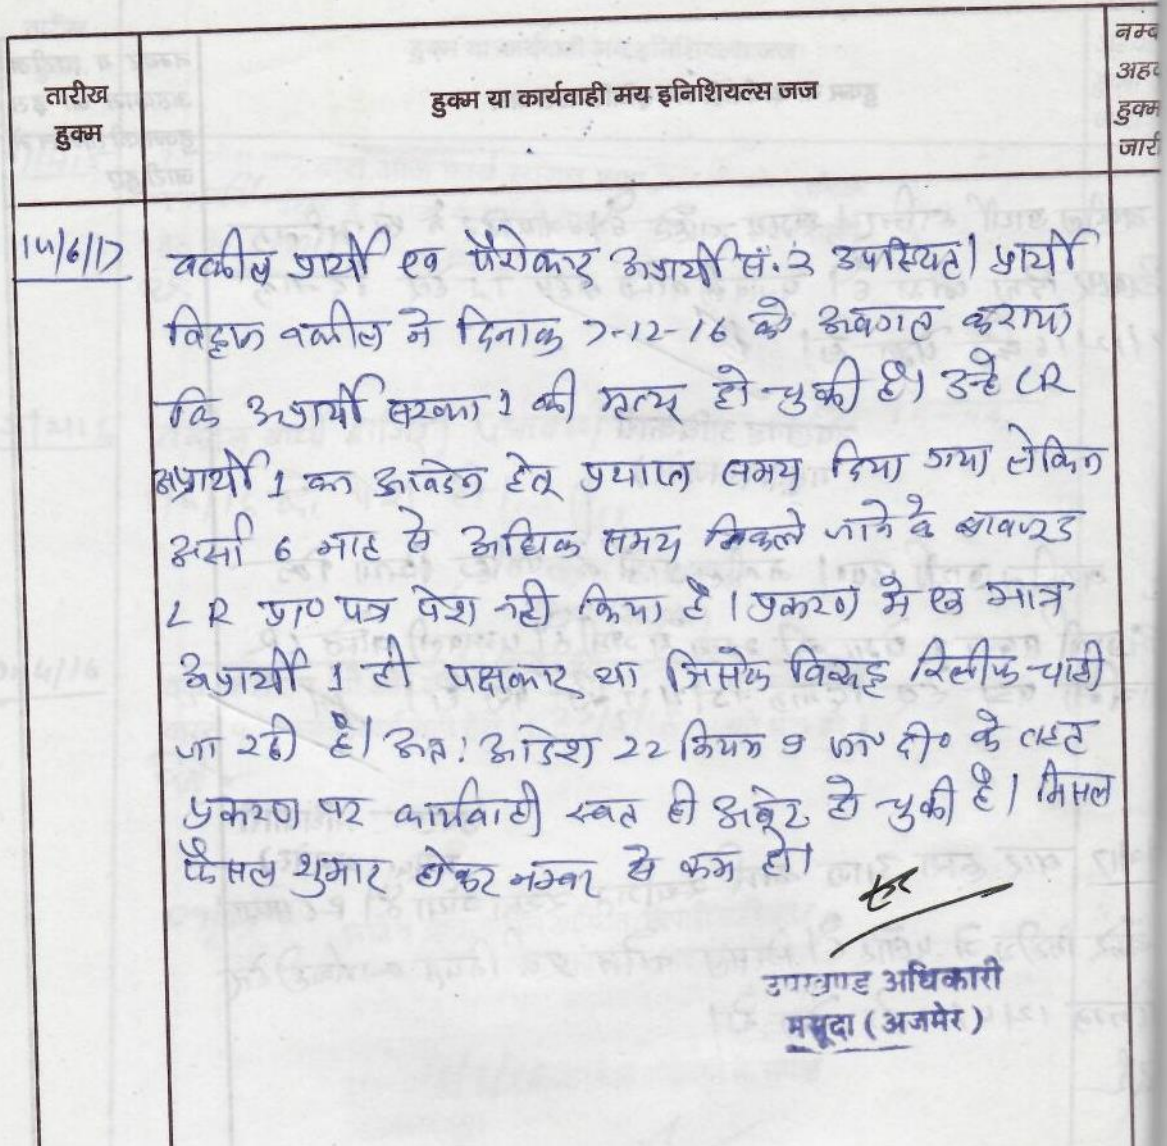 तारीख
हुक्म
हुक्म या कार्यवाही मय इनिशियल्स जज
नम्ब
अहव
हुक्म
जारी
14/6/17
वकील प्रार्थी एव पैरोकार अप्रार्थी सं. 3 उपस्थित। प्रार्थी
विद्वान वकील ने दिनाक 7-12-16 को अवगत कराया
कि अप्रार्थी सख्या 1 की मृत्यु हो चुकी है। उन्हे LR
अप्रार्थी 1 का आवेदन हेतु प्रयाप्त समय दिया गया लेकिन
अर्सा 6 माह से अधिक समय निकले जाने के बावजूद
LR प्रा० पत्र पेश नही किया है। प्रकरण मे एक मात्र
अप्रार्थी 1 ही पक्षकार था जिसके विरूद्ध रिलीफ चाही
जा रही है। अत: आदेश 22 नियम 9 जा० दी० के तहत
प्रकरण पर कार्यवाही स्वत ही अबेट हो चुकी है। मिसल
फैसल शुमार होकर नम्बर से कम हो।
उपखण्ड अधिकारी
मसूदा (अजमेर)